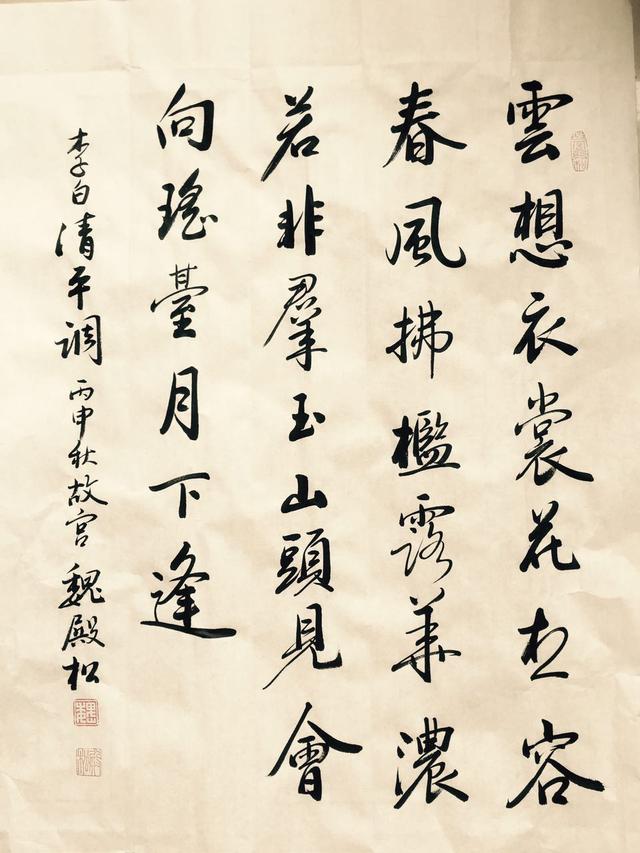 雲想衣裳花想容
春風拂檻露華濃
若非羣玉山頭見會
向瑤臺月下逢
李白清平调丙申秋故宫魏殿松